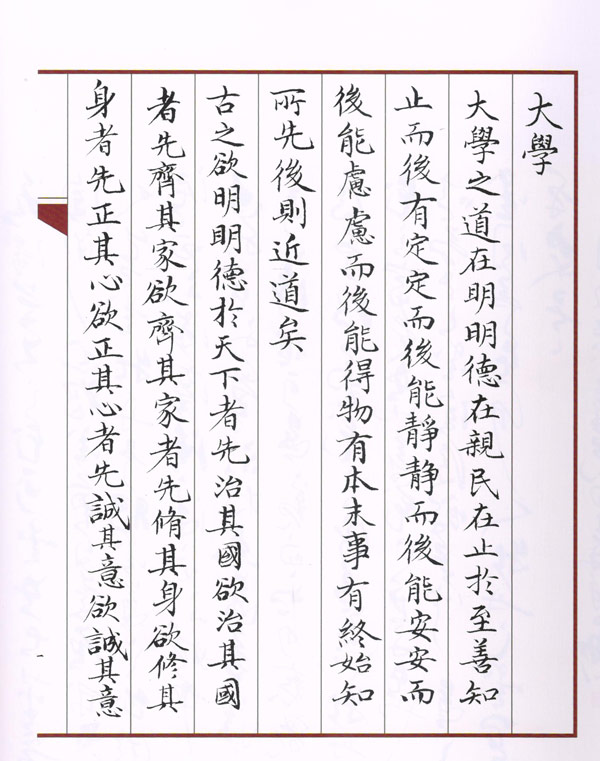 大學
大學之道在明明德在親民在止於至善知
止而後有定定而後能靜靜而後能安安而
後能慮慮而後能得物有本末事有終始知
所先後則近道矣
古之欲明明德於天下者先治其國欲治其國
者先齊其家欲齊其家者先脩其身欲修其
身者先正其心欲正其心者先誠其意欲誠其意